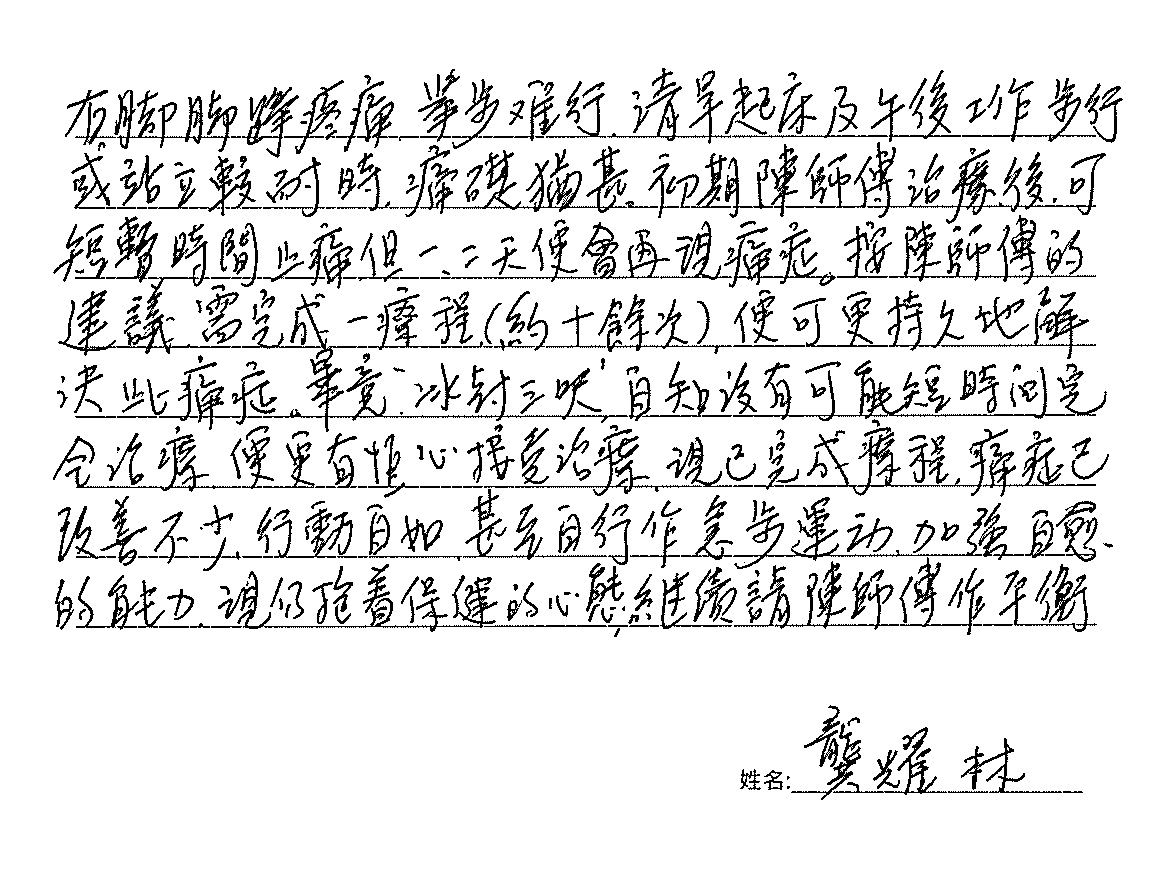 右脚脚踭疼痛, 举步难行. 清早起床及午後工作步行
或站立較耐時, 痛碍猶甚。初期陳師傅治療後, 可
短暫時間止痛但一、二天便會再現痛症。按陳師傅的
建議, 需完成一療程, (約十餘次), 便可更持久地解
决此痛症。畢竟“冰封三呎”, 自知没有可能短時间完
全治療, 便更有恒心接受治療. 現已完成療程, 痛症已
改善不少, 行動自如, 甚至自行作急步運动, 加强自愈
的能力. 現仍抱着保健的心態, 継續請陳師傅作平衡
姓名: 龔耀林